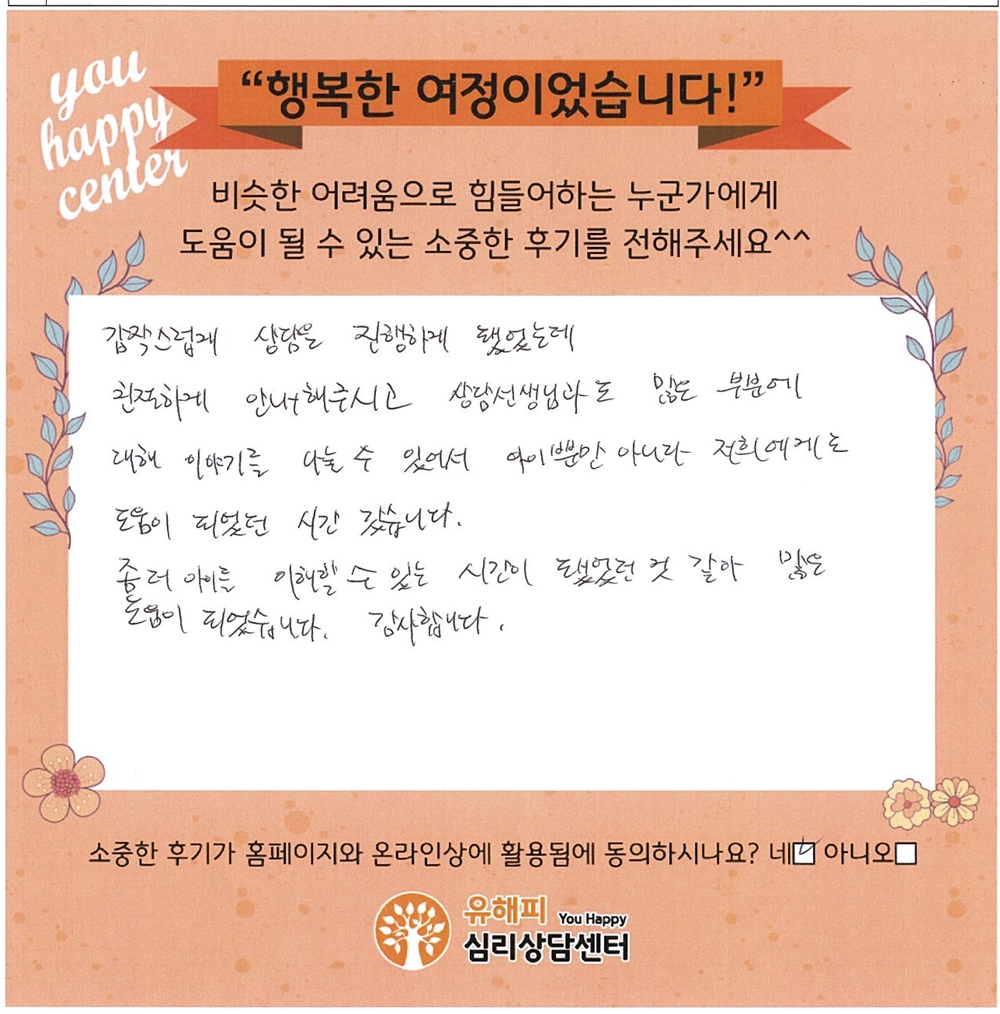 you
happy
center
“행복한 여정이었습니다!”
비슷한 어려움으로 힘들어하는 누군가에게
도움이 될 수 있는 소중한 후기를 전해주세요^^
갑작스럽게 상담을 진행하게 됐었는데
친절하게 안내해주시고 상담선생님과도 많은 부분에
대해 이야기를 나눌 수 있어서 아이뿐만 아니라 저희에게도
도움이 되었던 시간 같습니다.
좀 더 아이를 이해할 수 있는 시간이 됐었던 것 같아 많은
도움이 되었습니다. 감사합니다.
소중한 후기가 홈페이지와 온라인상에 활용됨에 동의하시나요? 네 아니오
유해피 You Happy
심리상담센터